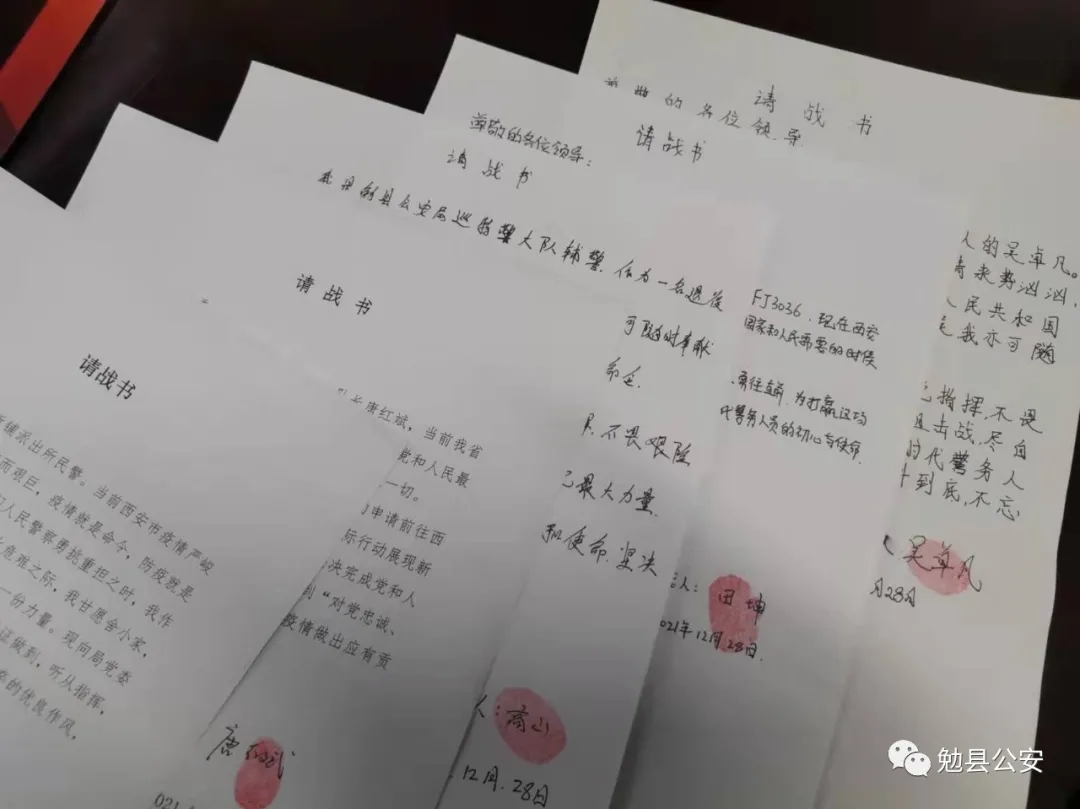 请战书
派出所民警。当前西安市疫情严峻
而艰巨,疫情就是命令,防疫就是
人民警察勇挑重担之时,我作
危难之际,我甘愿舍小家,
一份力量。现向局党委
证做到,听从指挥,
的优良作风,
请战书
唐红斌,当前我省
党和人民最
一切。
申请前往西
际行动展现新
决完成党和人
“对党忠诚、
疫情做出应有贡
唐红斌
021
请战书
本人勉县公安局巡特警大队辅警,作为一名退役
可随时奉献
命令。
不畏艰险
己最大力量
和使命,坚决
人:高山
12月.28日
尊敬的各位领导:
请战书
FJ3036,现在西安
国家和人民需要的时候
勇往直前,为打赢这场
代警务人员的初心与使命
人:田坤
021年12月28日.
请战书
的各位领导
人的吴卓凡。
来势汹汹,
人民共和国
我亦可随
指挥,不畏
击战,尽自
时代警务人
到底,不忘
吴卓凡
月28日
勉县公安